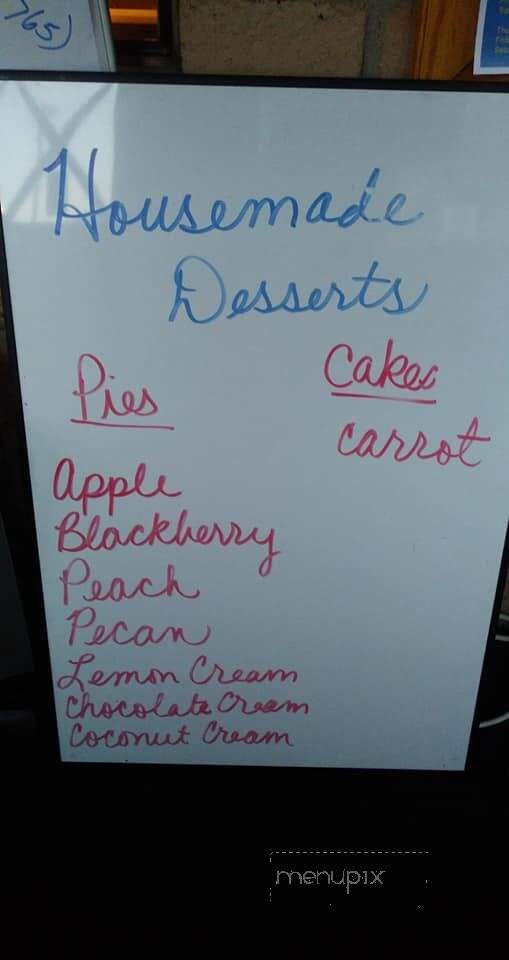 765)
Housemade
Desserts
Pies
Apple
Blackberry
Peach
Pecan
Lemon Cream
Chocolate Cream
Coconut Cream
Cakes
carrot
menupix